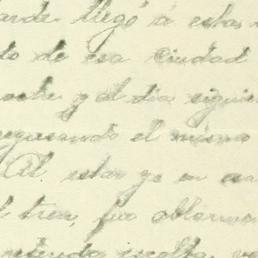 arde llegó á estas
to de esa Ciudad
oche y al dia siguie
regresando el mismo
Al estar yo en esa
l tren, fue